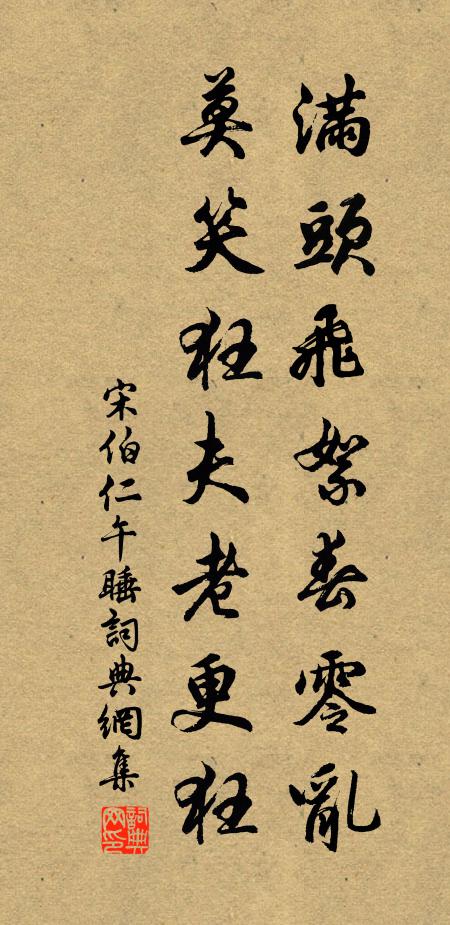 滿頭飛絮春零亂
莫笑狂夫老更狂
宋伯仁午睡詞典網集
詞典網印